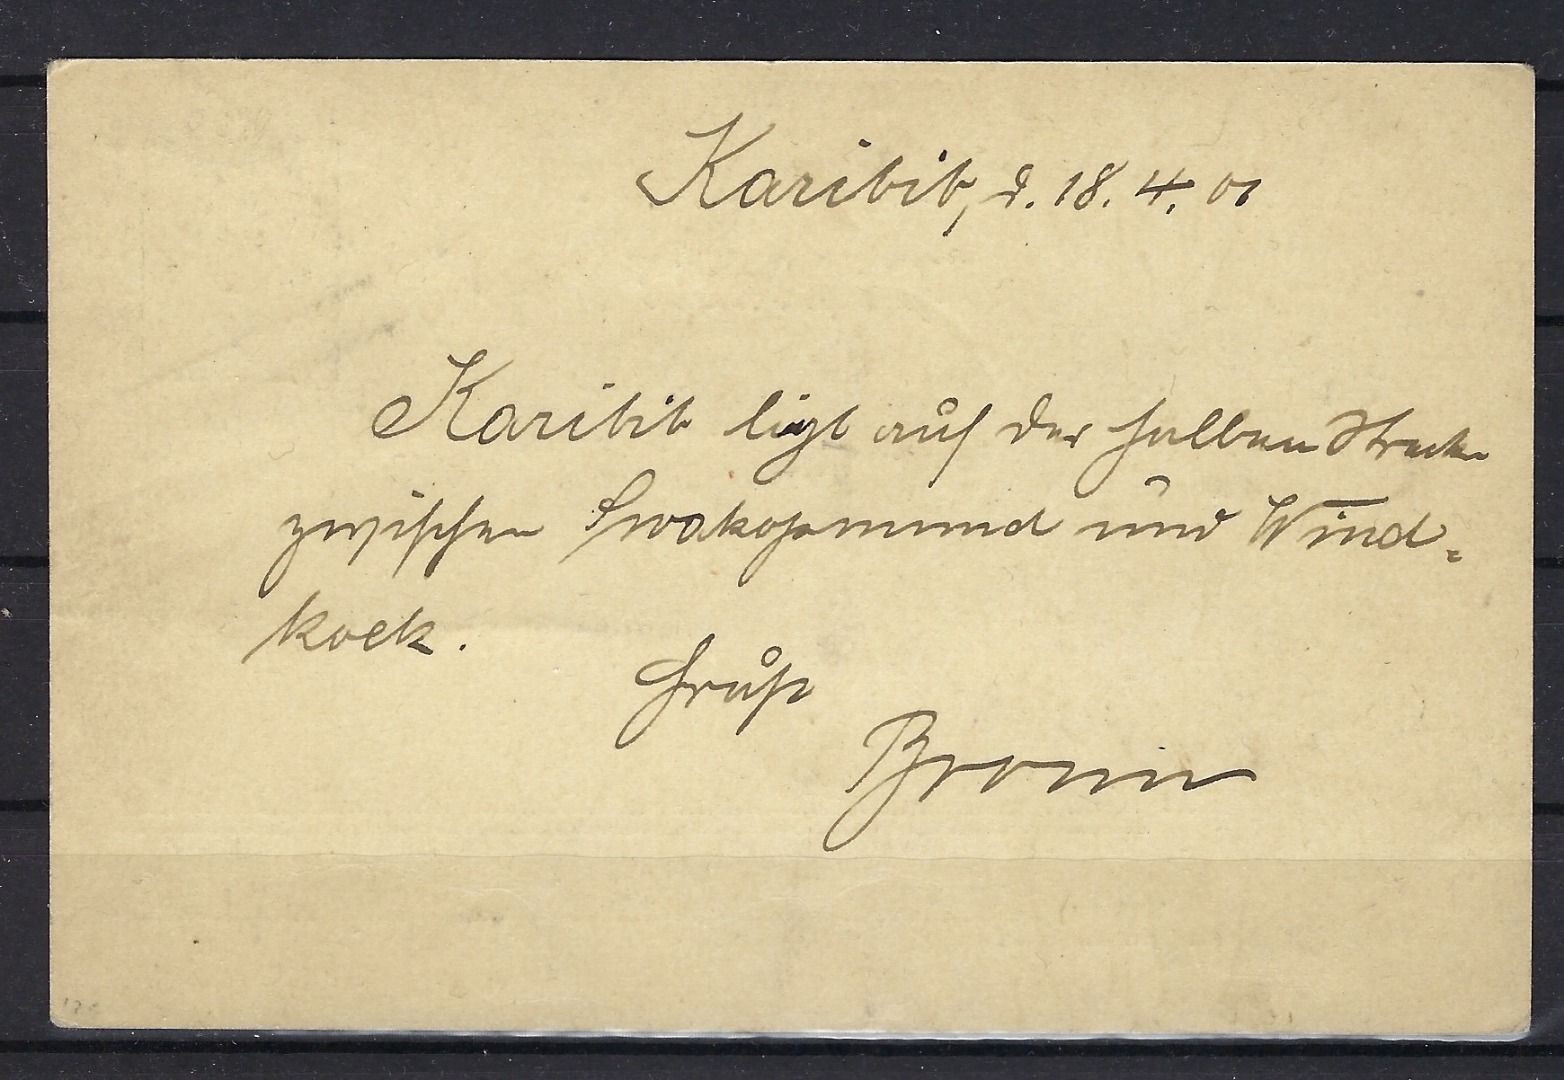 Karibib, d. 18. 4. 01
Karibib liegt auf der halben Strecke
zwischen Swakopmund und Wind-
hoek.
Gruß